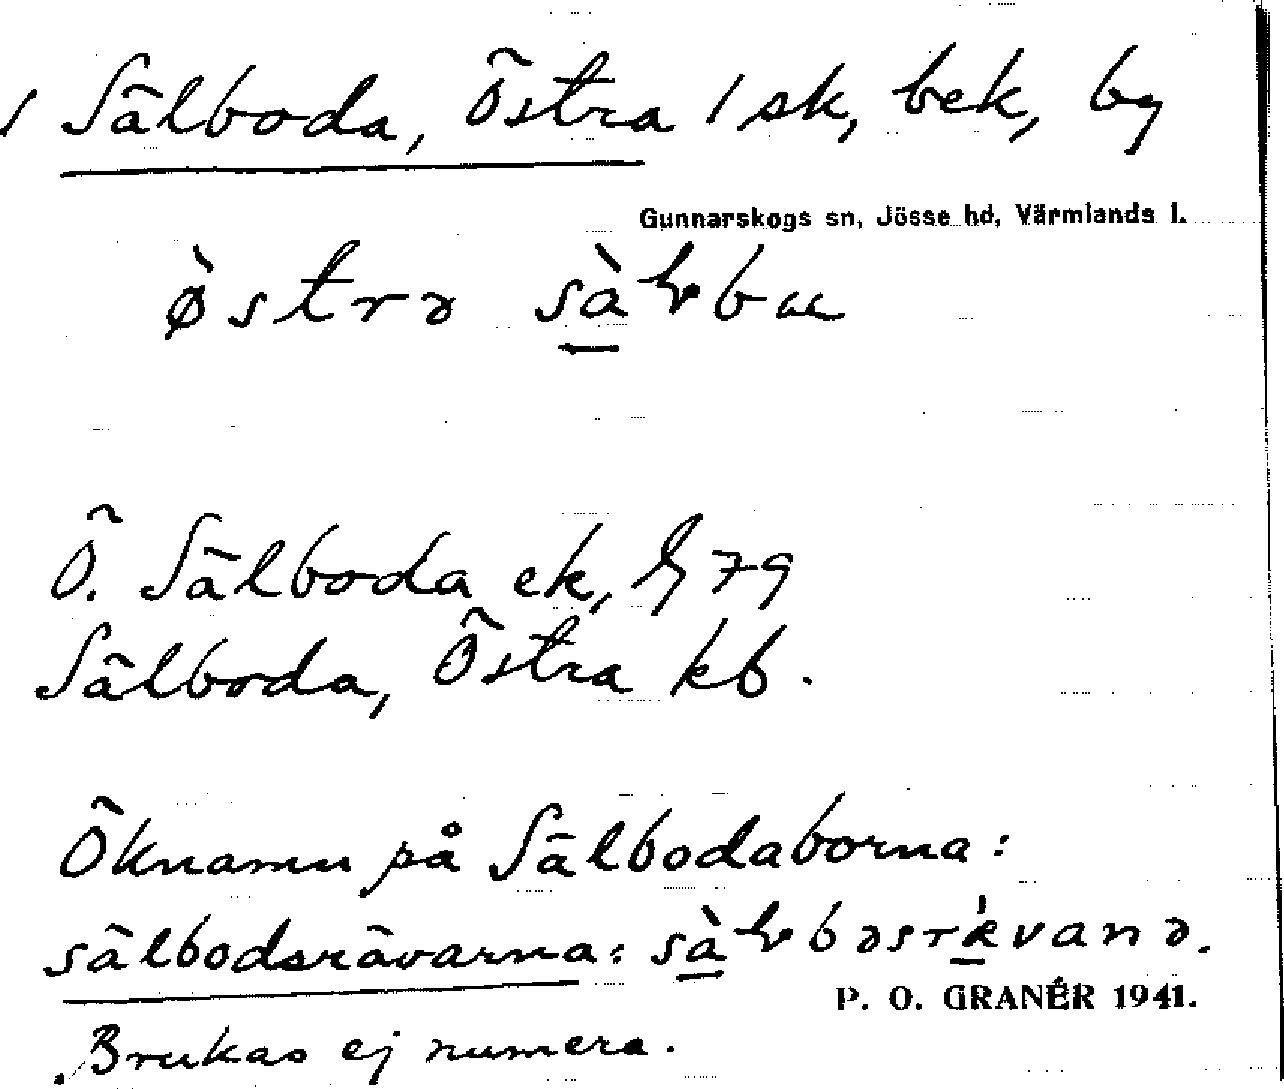 / Sälboda, Östra / sk, bek, by
Gunnarskogs sn, Jösse hd, Värmlands l.
Ö. Sälboda ek, G 79
Sälboda, Östra kb.
Öknamn på Sälbodaborna:
sälbodsrävarna:
P. O. GRANÉR 1941.
Brukas ej numera.